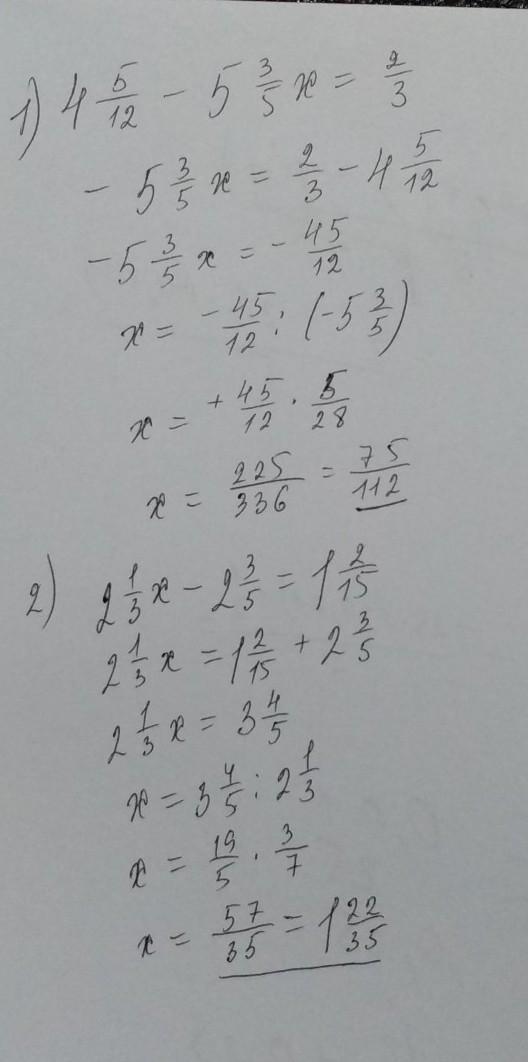 1) 4 5/12 - 5 3/5 x = 2/3
- 5 3/5 x = 2/3 - 4 5/12
- 5 3/5 x = - 45/12
x = - 45/12 : (-5 3/5)
x = + 45/12 · 5/28
x = 225/336 = 75/112
2) 2 1/3 x - 2 3/5 = 1 2/15
2 1/3 x = 1 2/15 + 2 3/5
2 1/3 x = 3 4/5
x = 3 4/5 : 2 1/3
x = 19/5 · 3/7
x = 57/35 = 1 22/35